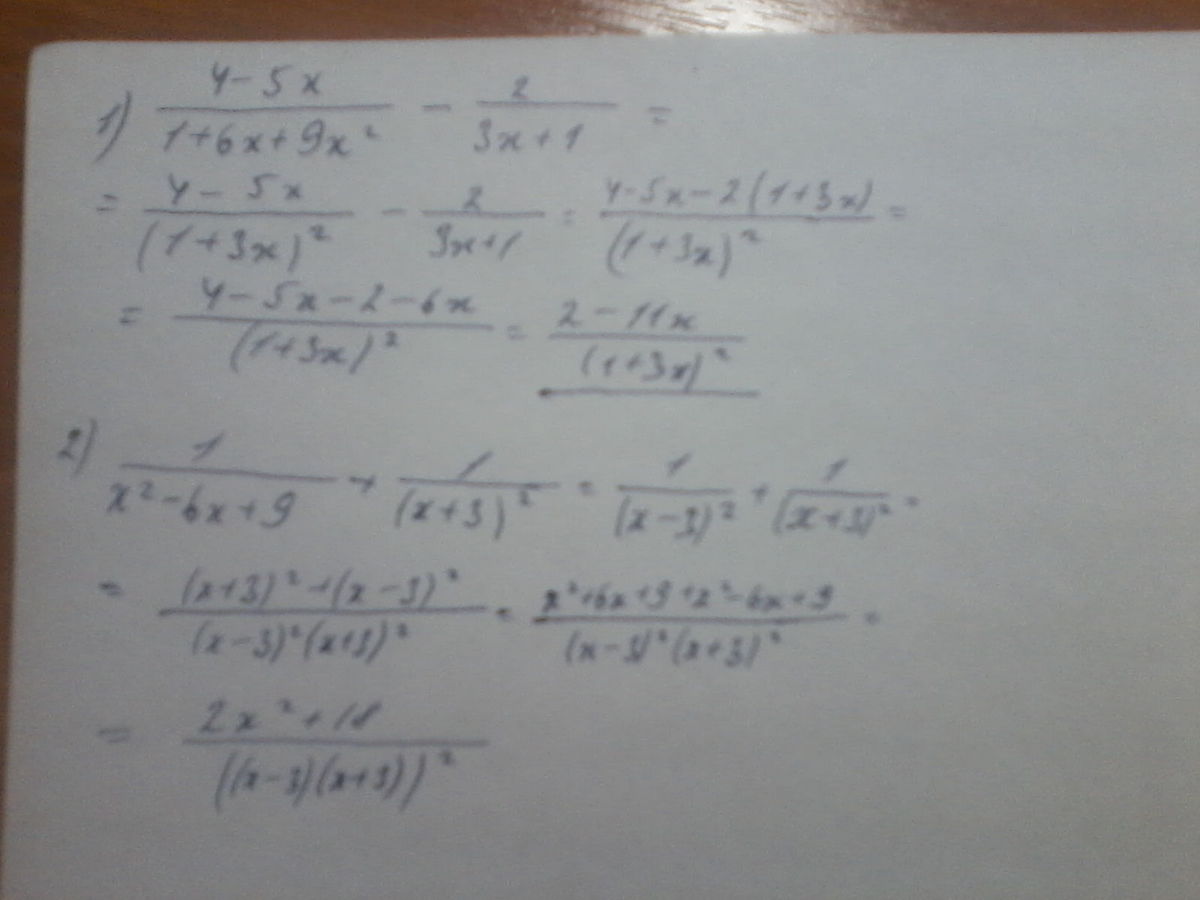 1) (4-5x)/(1+6x+9x²) - 2/(3x+1) =
= (4-5x)/(1+3x)² - 2/(3x+1) = (4-5x-2(1+3x))/(1+3x)² =
= (4-5x-2-6x)/(1+3x)² = (2-11x)/(1+3x)²
2) 1/(x²-6x+9) + 1/(x+3)² = 1/(x-3)² + 1/(x+3)² =
= ((x+3)²+(x-3)²)/((x-3)²(x+3)²) = (x²+6x+9+x²-6x+9)/((x-3)²(x+3)²) =
= (2x²+18)/((x-3)(x+3))²